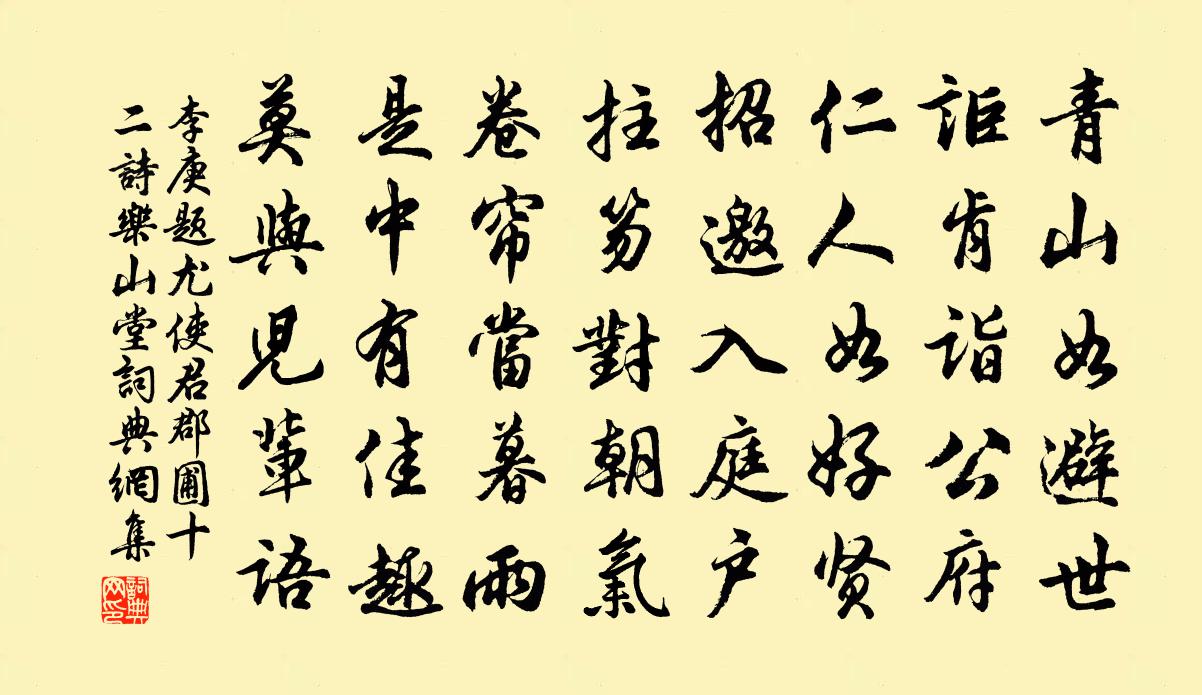 青山如避世
詎肯詣公府
仁人如好贤
招邀入庭户
拄笏對朝氣
卷帘當暮雨
是中有佳趣
莫與兒輩語
李庚题尤使君郡圃十
二詩樂山堂詞典網集
詞典網印